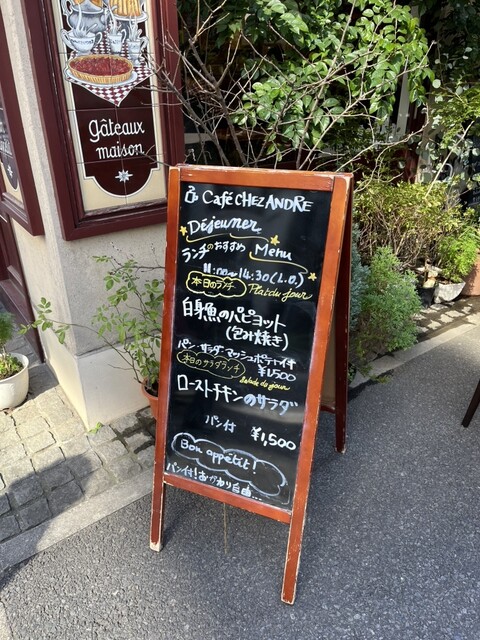 Gâteaux
maison
Café CHEZ ANDRE
Déjeuner
ランチのおすすめ Menu
11:00~14:30(L.O.)
本日のランチ Plat du jour
白身魚のパピヨット
(包み焼き)
パン・サラダ・マッシュポテト付
¥1,500
本日のサラダランチ salade du jour
ローストチキンのサラダ
パン付
¥1,500
Bon appétit!
パン付!おかわり自由...